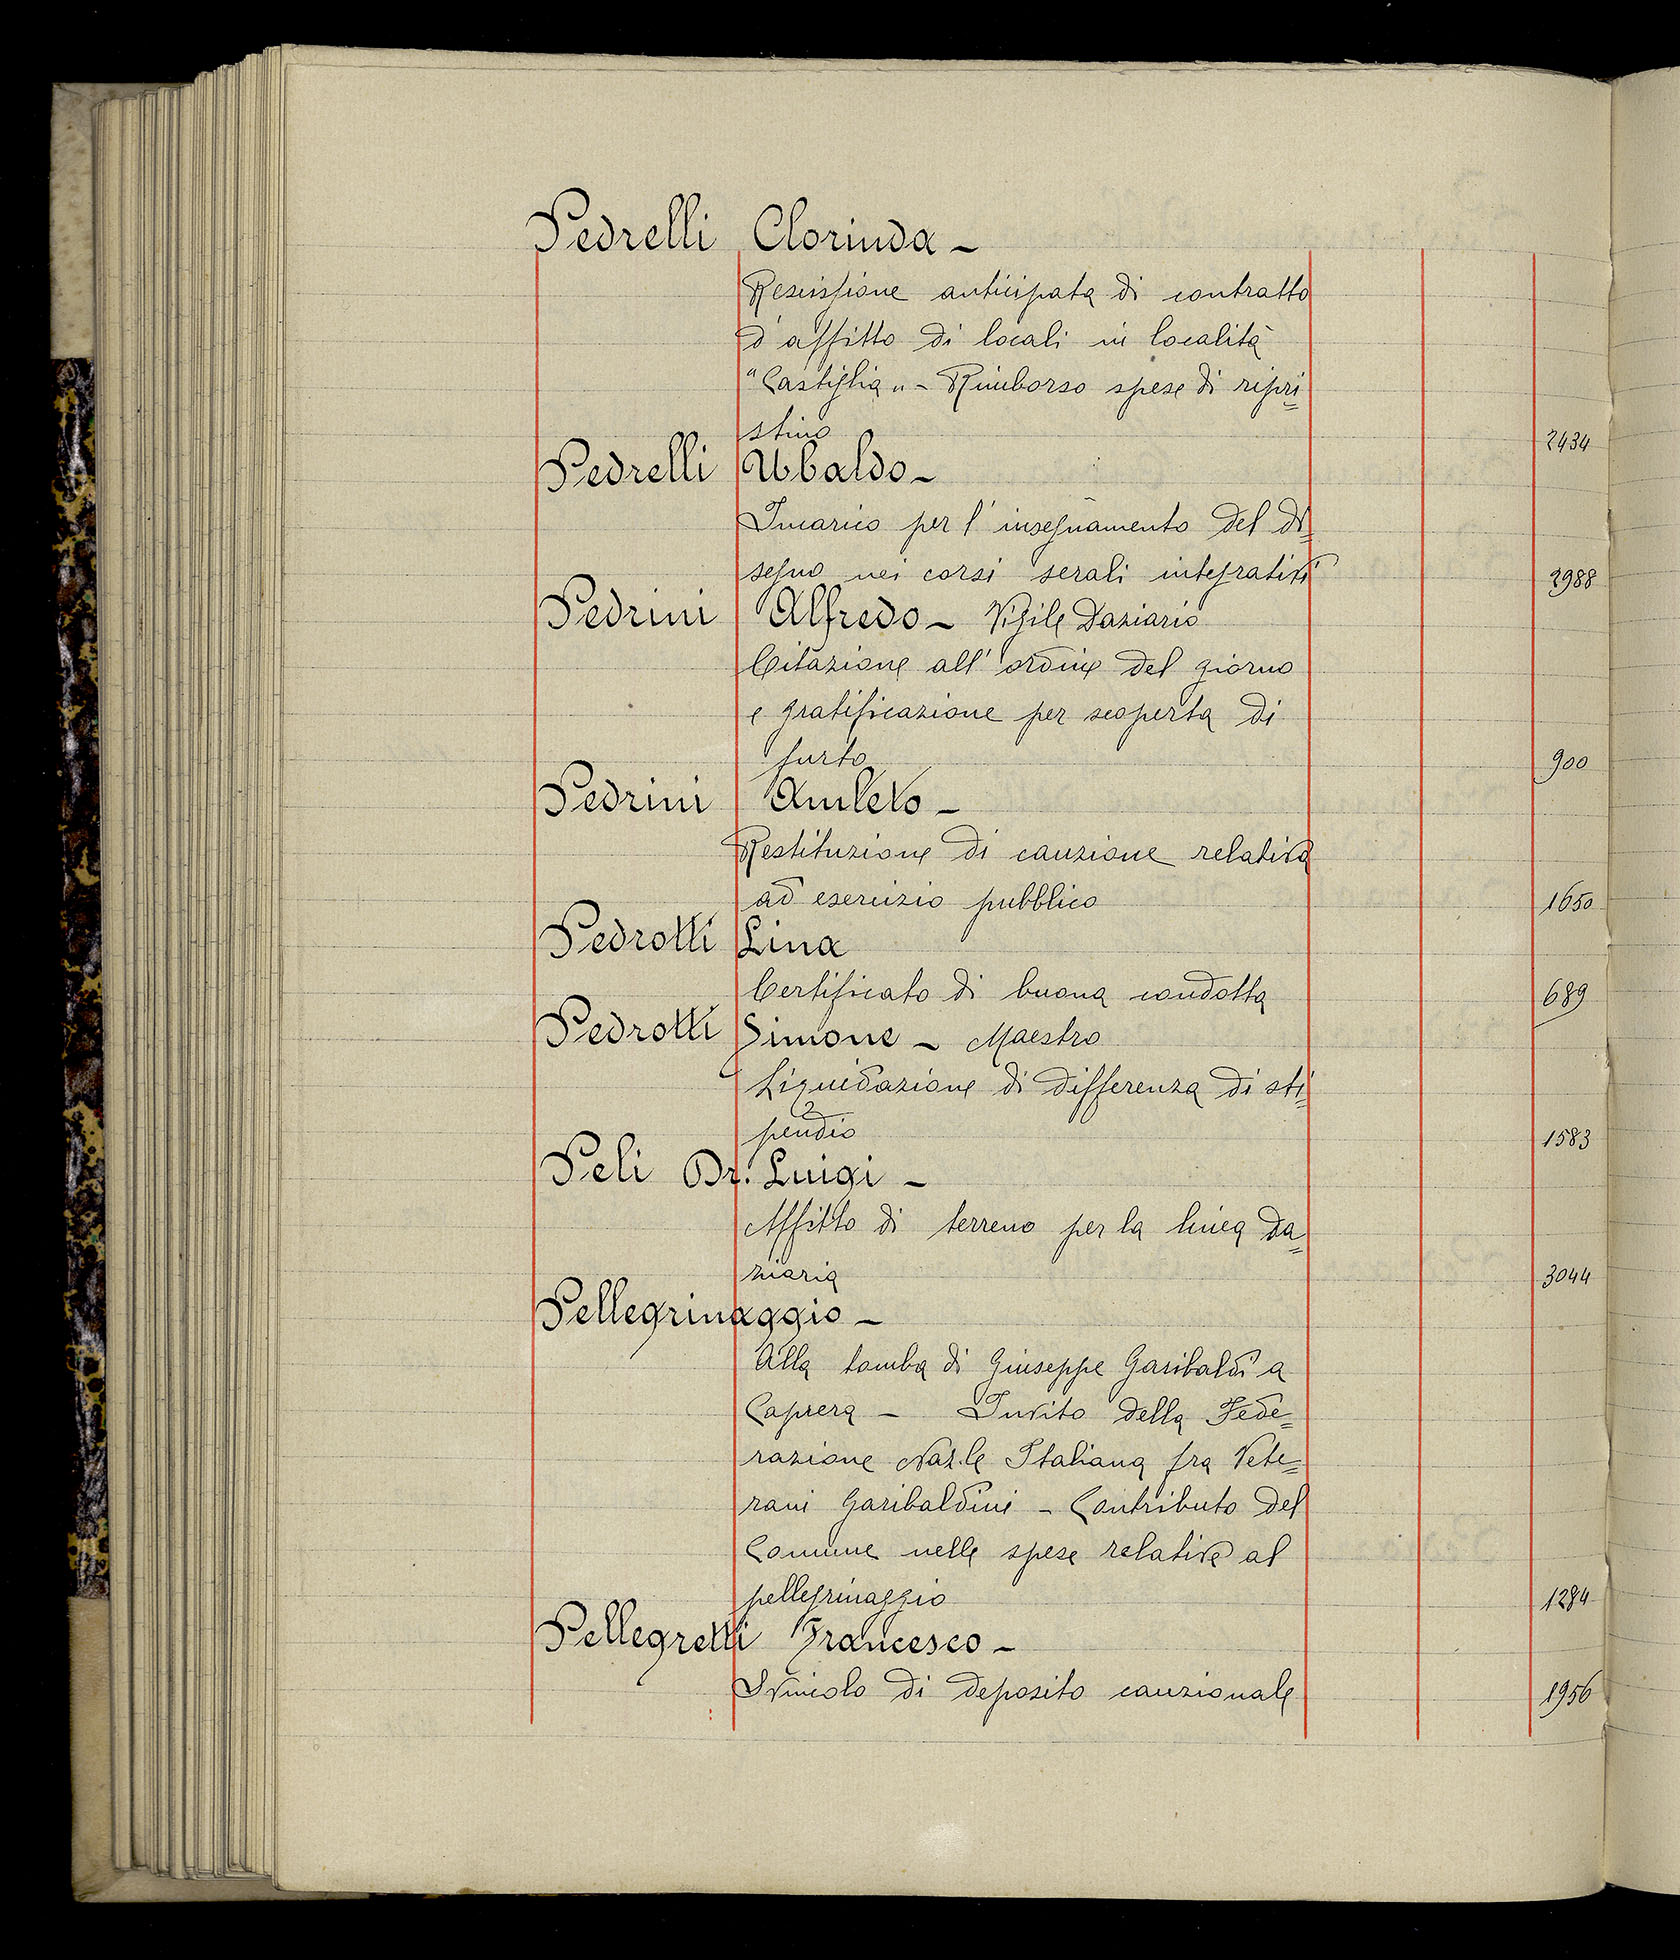 Pedrelli Clorinda –
Rescissione anticipata di contratto
d'affitto di locali in località
"Castiglia" – Rimborso spese di ripri=
stino 2434
Pedrelli Ubaldo –
Incarico per l'insegnamento del di=
segno nei corsi serali integrativi 2988
Pedrini Alfredo – Vigile Daziario
Citazione all'ordine del giorno
e gratificazione per scoperta di
furto 900
Pedrini Amleto –
Restituzione di cauzione relativa
ad esercizio pubblico 1650
Pedrotti Lina
Certificato di buona condotta 689
Pedrotti Simone – Maestro
Liquidazione di differenza di sti=
pendio 1583
Peli Dr. Luigi –
Affitto di terreno per la linea da=
ziaria 3044
Pellegrinaggio –
Alla tomba di Giuseppe Garibaldi a
Caprera – Invito della Fede=
razione Naz.le Italiana fra Vete=
rani Garibaldini – Contributo del
Comune nelle spese relative al
pellegrinaggio 1284
Pellegretti Francesco –
Svincolo di deposito cauzionale 1956